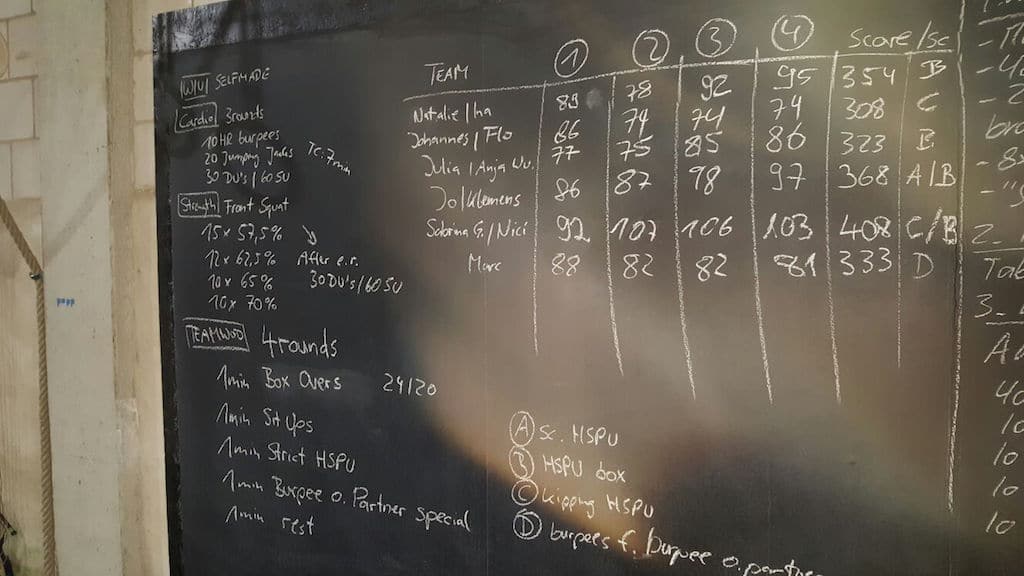 WU SELFMADE
Cardio 3rounds
10 HR burpees
20 Jumping Jacks TC: 7min
30 DU's / 60 SU
Strength Front Squat
15x 57,5%
12x 62,5% After e.r.
10x 65% 30 DU's / 60 SU
10x 70%
TEAMWOD 4rounds
1min Box Overs 24/20
1min Sit Ups
1min Strict HSPU
1min Burpee o. Partner special
1min rest
TEAM 1 2 3 4 Score/sc
Natalie / Ina 89 78 92 95 354 B
Johannes / Flo 86 74 74 74 308 C
Julia / Anja Wu. 77 75 85 86 323 B
Jo / Klemens 86 87 98 97 368 A/B
Sabrina G. / Nici 92 107 106 103 408 C/B
Marc 88 82 82 81 333 D
A sc. HSPU
B HSPU box
C kipping HSPU
D burpees f. burpee o. partner
2.
3.